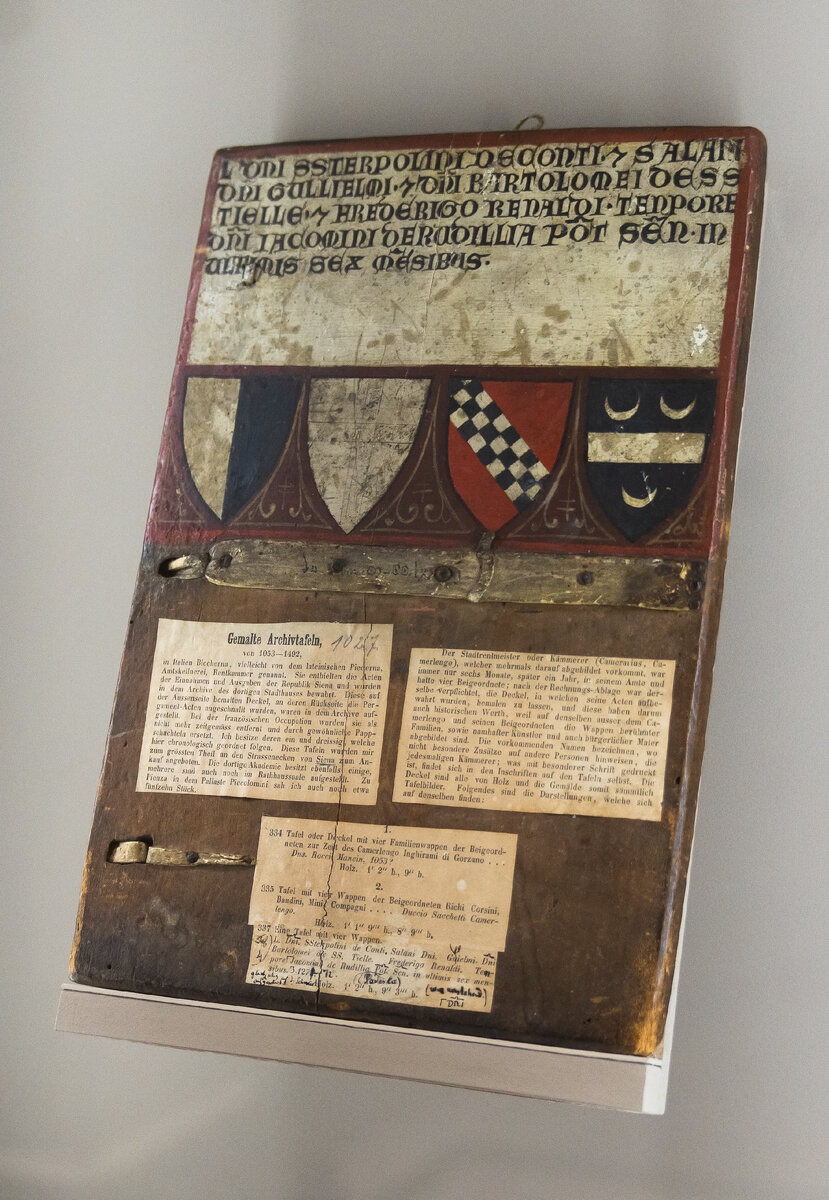 DNI SSTERPOLINI DECONTI · 7 SALAN
DNI GULLIELMI · 7 DNI BARTOLOMEI DESS
TIELLE · 7 FREDERIGO RENALDI · TENPORE
DNI IACOMINI DERUDILLIA POT SEN · IN
ULTIMIS SEX MESIBUS ·
Gemalte Archivtafeln, 1027
von 1053—1492,
in Italien Biccherna, vielleicht von dem lateinischen Picerna,
Amtskellnerei, Rentkammer genannt. Sie enthielten die Acten
der Einnahmen und Ausgaben der Republik Siena und wurden
in dem Archive des dortigen Stadthauses bewahrt. Diese auf
der Aussenseite bemalten Deckel, an deren Rückseite die Per-
gament-Acten angeschnallt wurden, waren in dem Archive auf-
gestellt. Bei der französischen Occupation wurden sie als
nicht mehr zeitgemäss entfernt und durch gewöhnliche Papp-
schachteln ersetzt. Ich besitze deren ein und dreissig, welche
hier chronologisch geordnet folgen. Diese Tafeln wurden mir
zum grössten Theil an den Strassenecken von Siena zum An-
kauf angeboten. Die dortige Akademie besitzt ebenfalls einige,
mehrere sind auch noch im Rathhaussaale aufgestellt. Zu
Pienza in dem Pallaste Piccolomini sah ich auch noch etwa
fünfzehn Stück.
Der Stadtrentmeister oder Kämmerer (Camerarius, Ca-
merlengo), welcher mehrmals darauf abgebildet vorkommt, war
immer nur sechs Monate, später ein Jahr, in seinem Amte und
hatte vier Beigeordnete; nach der Rechnungs-Ablage war der-
selbe verpflichtet, die Deckel, in welchen seine Acten aufbe-
wahrt wurden, bemalen zu lassen, und diese haben darum
auch historischen Werth, weil auf denselben ausser dem Ca-
merlengo und seinen Beigeordneten die Wappen berühmter
Familien, sowie namhafter Künstler und auch bürgerlicher Maler
abgebildet sind. Die vorkommenden Namen bezeichnen, wo
nicht besondere Zusätze auf andere Personen hinweisen, die
jedesmaligen Kämmerer; was mit besonderer Schrift gedruckt
ist, findet sich in den Inschriften auf den Tafeln selbst. Die
Deckel sind alle von Holz und die Gemälde somit sämmtlich
Tafelbilder. Folgendes sind die Darstellungen, welche sich
auf denselben finden:
1.
334 Tafel oder Deckel mit vier Familienwappen der Beigeord-
neten zur Zeit des Camerlengo Inghirami di Gorzano . . .
Dnz. Rocci Mancin. 1053?
Holz. 1' 2" h., 9" b.
2.
335 Tafel mit vier Wappen der Beigeordneten Bichi Corsini,
Bandini, Mini Compagni . . . . Duccio Sacchetti Camer-
lengo.
Holz. 1' 1" 9''' h., 8" 9''' b.
337 Eine Tafel mit vier Wappen.
Dni. SSterpolini de Conti. Salani Dni. Guielmi. Dni
Bartolomei de SS. Tielle. Frederigo Renaldi. Ten-
pore Jacomini de Rudillia Pot. Sen. in ultimis sex men-
sibus.
Holz. 1' 2" h., 9" 3''' b.